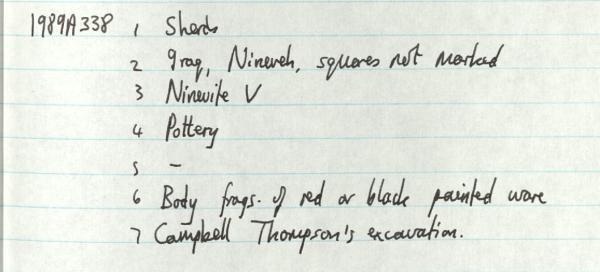 1989A338 1 Sherds
2 Iraq, Nineveh, squares not marked
3 Ninevite V
4 Pottery
5 -
6 Body frags. of red or black painted ware
7 Campbell Thompson's excavation.